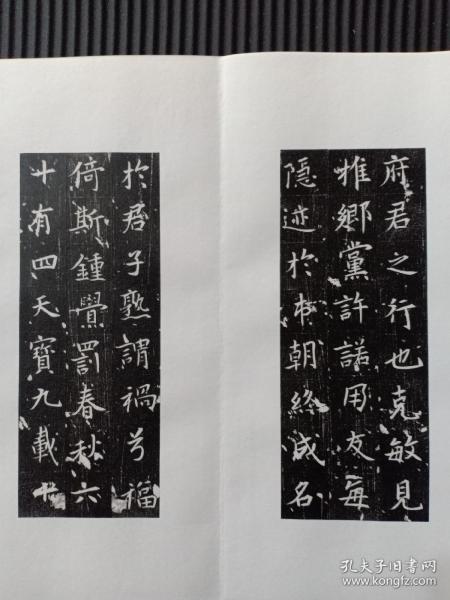 府君之行也克敏見
推鄉黨許諾用友每
隱迹於市朝終成名
於君子孰謂禍兮福
倚斯鍾舋罰春秋六
十有四天寶九載十
孔夫子旧书网
www.kongfz.com